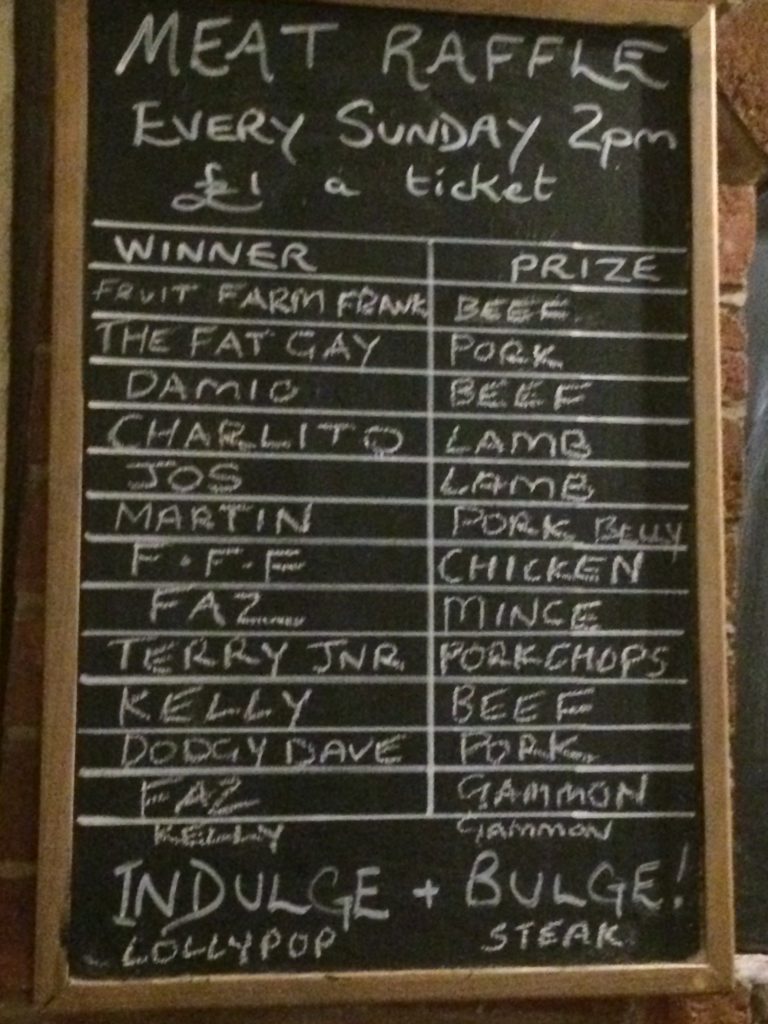 MEAT RAFFLE
EVERY SUNDAY 2pm
£1 a ticket
WINNER PRIZE
FRUIT FARM FRANK BEEF
THE FAT GAY PORK
DAMIO BEEF
CHARLITO LAMB
JOS LAMB
MARTIN PORK BELLY
F.F.F CHICKEN
FAZ MINCE
TERRY JNR PORKCHOPS
KELLY BEEF
DODGY DAVE PORK
FAZ GAMMON
KELLY GAMMON
INDULGE + BULGE!
LOLLYPOP STEAK